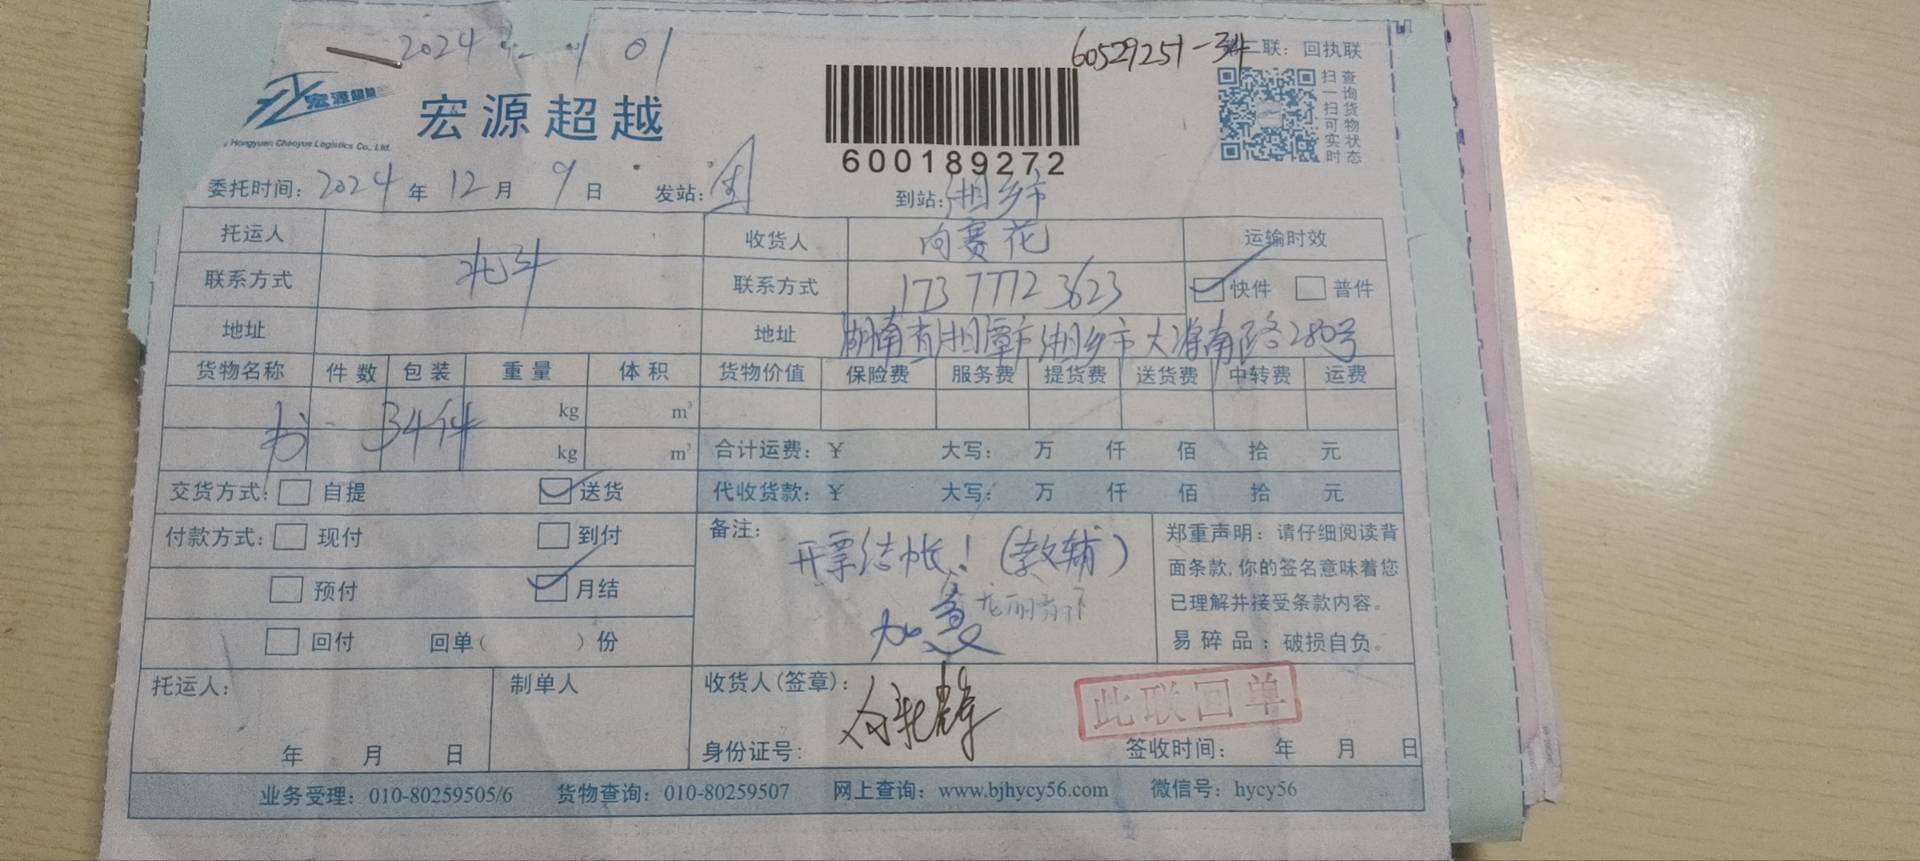 2024 01
60529251-34
第二联：回执联
宏源超越
Hongyuan Chaoyue Logistics Co., Ltd.
宏源超越
600189272
扫一扫可实时
查询货物状态
委托时间：2024 年 12 月 9 日 发站： 到站：湘乡市
托运人 收货人 向赛花 运输时效
联系方式 联系方式 173 7772 3623 快件 普件
地址 地址 湖南省湘潭市湘乡市大将南路280号
货物名称 件数 包装 重量 体积 货物价值 保险费 服务费 提货费 送货费 中转费 运费
书 34件 kg m³
kg m³
合计运费：¥ 大写： 万 仟 佰 拾 元
交货方式： 自提 送货
代收货款：¥ 大写： 万 仟 佰 拾 元
付款方式： 现付 到付
预付 月结
回付 回单（ ）份
备注：
开票结帐！（教辅）
加急
郑重声明：请仔细阅读背
面条款，你的签名意味着您
已理解并接受条款内容。
易碎品：破损自负。
托运人： 制单人 收货人（签章）：
此联回单
年 月 日 身份证号： 签收时间： 年 月 日
业务受理：010-80259505/6 货物查询：010-80259507 网上查询：www.bjhycy56.com 微信号：hycy56